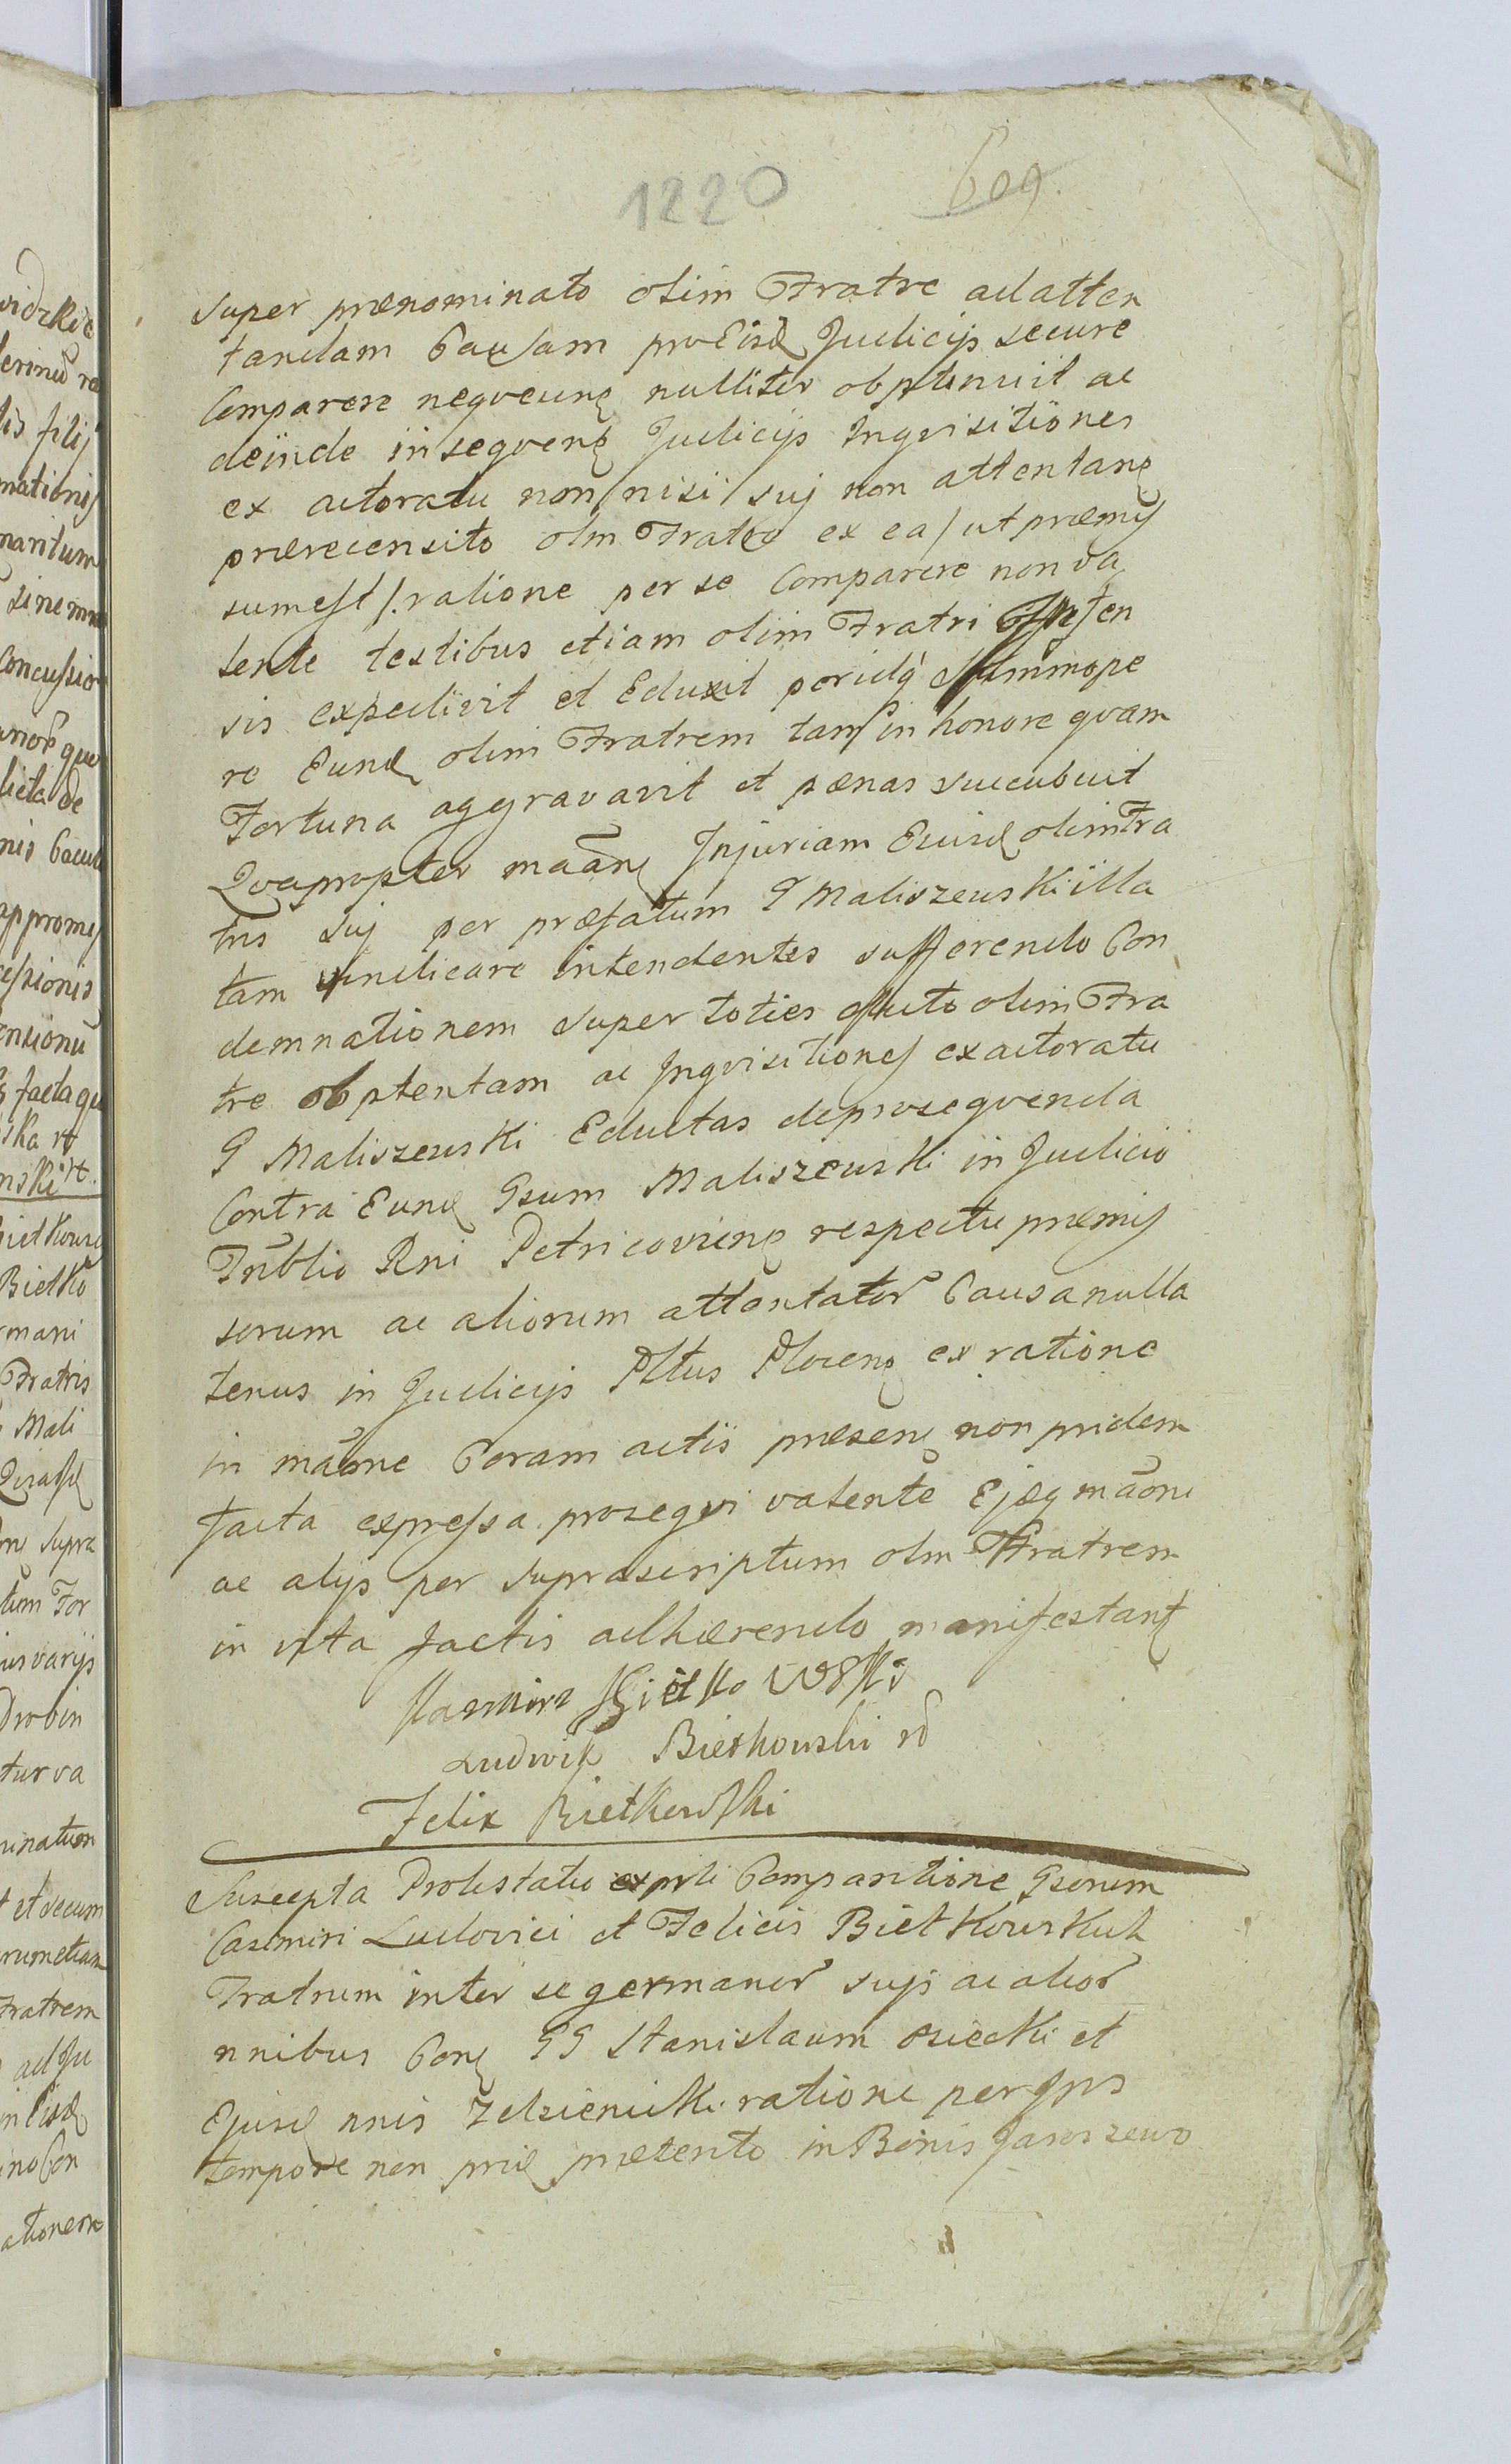 1220 609.
super prænominato olim Fratre ad atten
tandam Causam pro Eisd Judicijs secure
Comparere neqveunꝫ nulliter obptinuit ac
deinde in seqvenꝫ Judicijs Inqvisitiones
ex actoratu non nisi suj non attentanꝫ
prærecensito olm Fratre ex ea / ut præmis
sum est / ratione per se Comparere non va
lente testibus etiam olim Fratri Infen
sis expedivit et Eduxit peridq summope
re Eund olim Fratrem tam in honore qvam
Fortuna aggravavit et pænas succubuit
Qvapropter maãnꝫ Injuriam Ejusd olim Fra
tris Suj per præfatum G Maliszewski illa
tam vindicare intendentes sufferendo Con
demnationem super toties dicto olim Fra
tre obptentam ac Inqvisitiones ex actoratu
G Maliszewski Eductas deproseqvenda
Contra Eund Gsum Maliszewski in Judicio
Trĩblio Rni Petricovienꝫ respectu præmis
sorum ac aliorum attentator Causa nulla
tenus in Judicijs Pltus Plocenꝫ ex ratione
in mãone Coram actis præsenꝫ non pridem
facta expressa proseqvi valente Ejꝫq mãoni
ac alijs per suprascriptum olm Fratrem
in vita factis adhærendo manifestanꝫ
Kazmirz Bietko wski
Ludwik Bietkowski
Felix Bietkowski
Suscepta Protestatio ex prti Comparitione Gsorum
Casimiri Ludovici et Felicis Bietkowskich
Fratrum inter se germanor sujs ac alior
nnibus Conꝫ GG Stanislaum Osiecki et
Ejusd nnis Zelzienicki ratione per Ipos
tempore non prid prætento in Bonis Jaroszewo